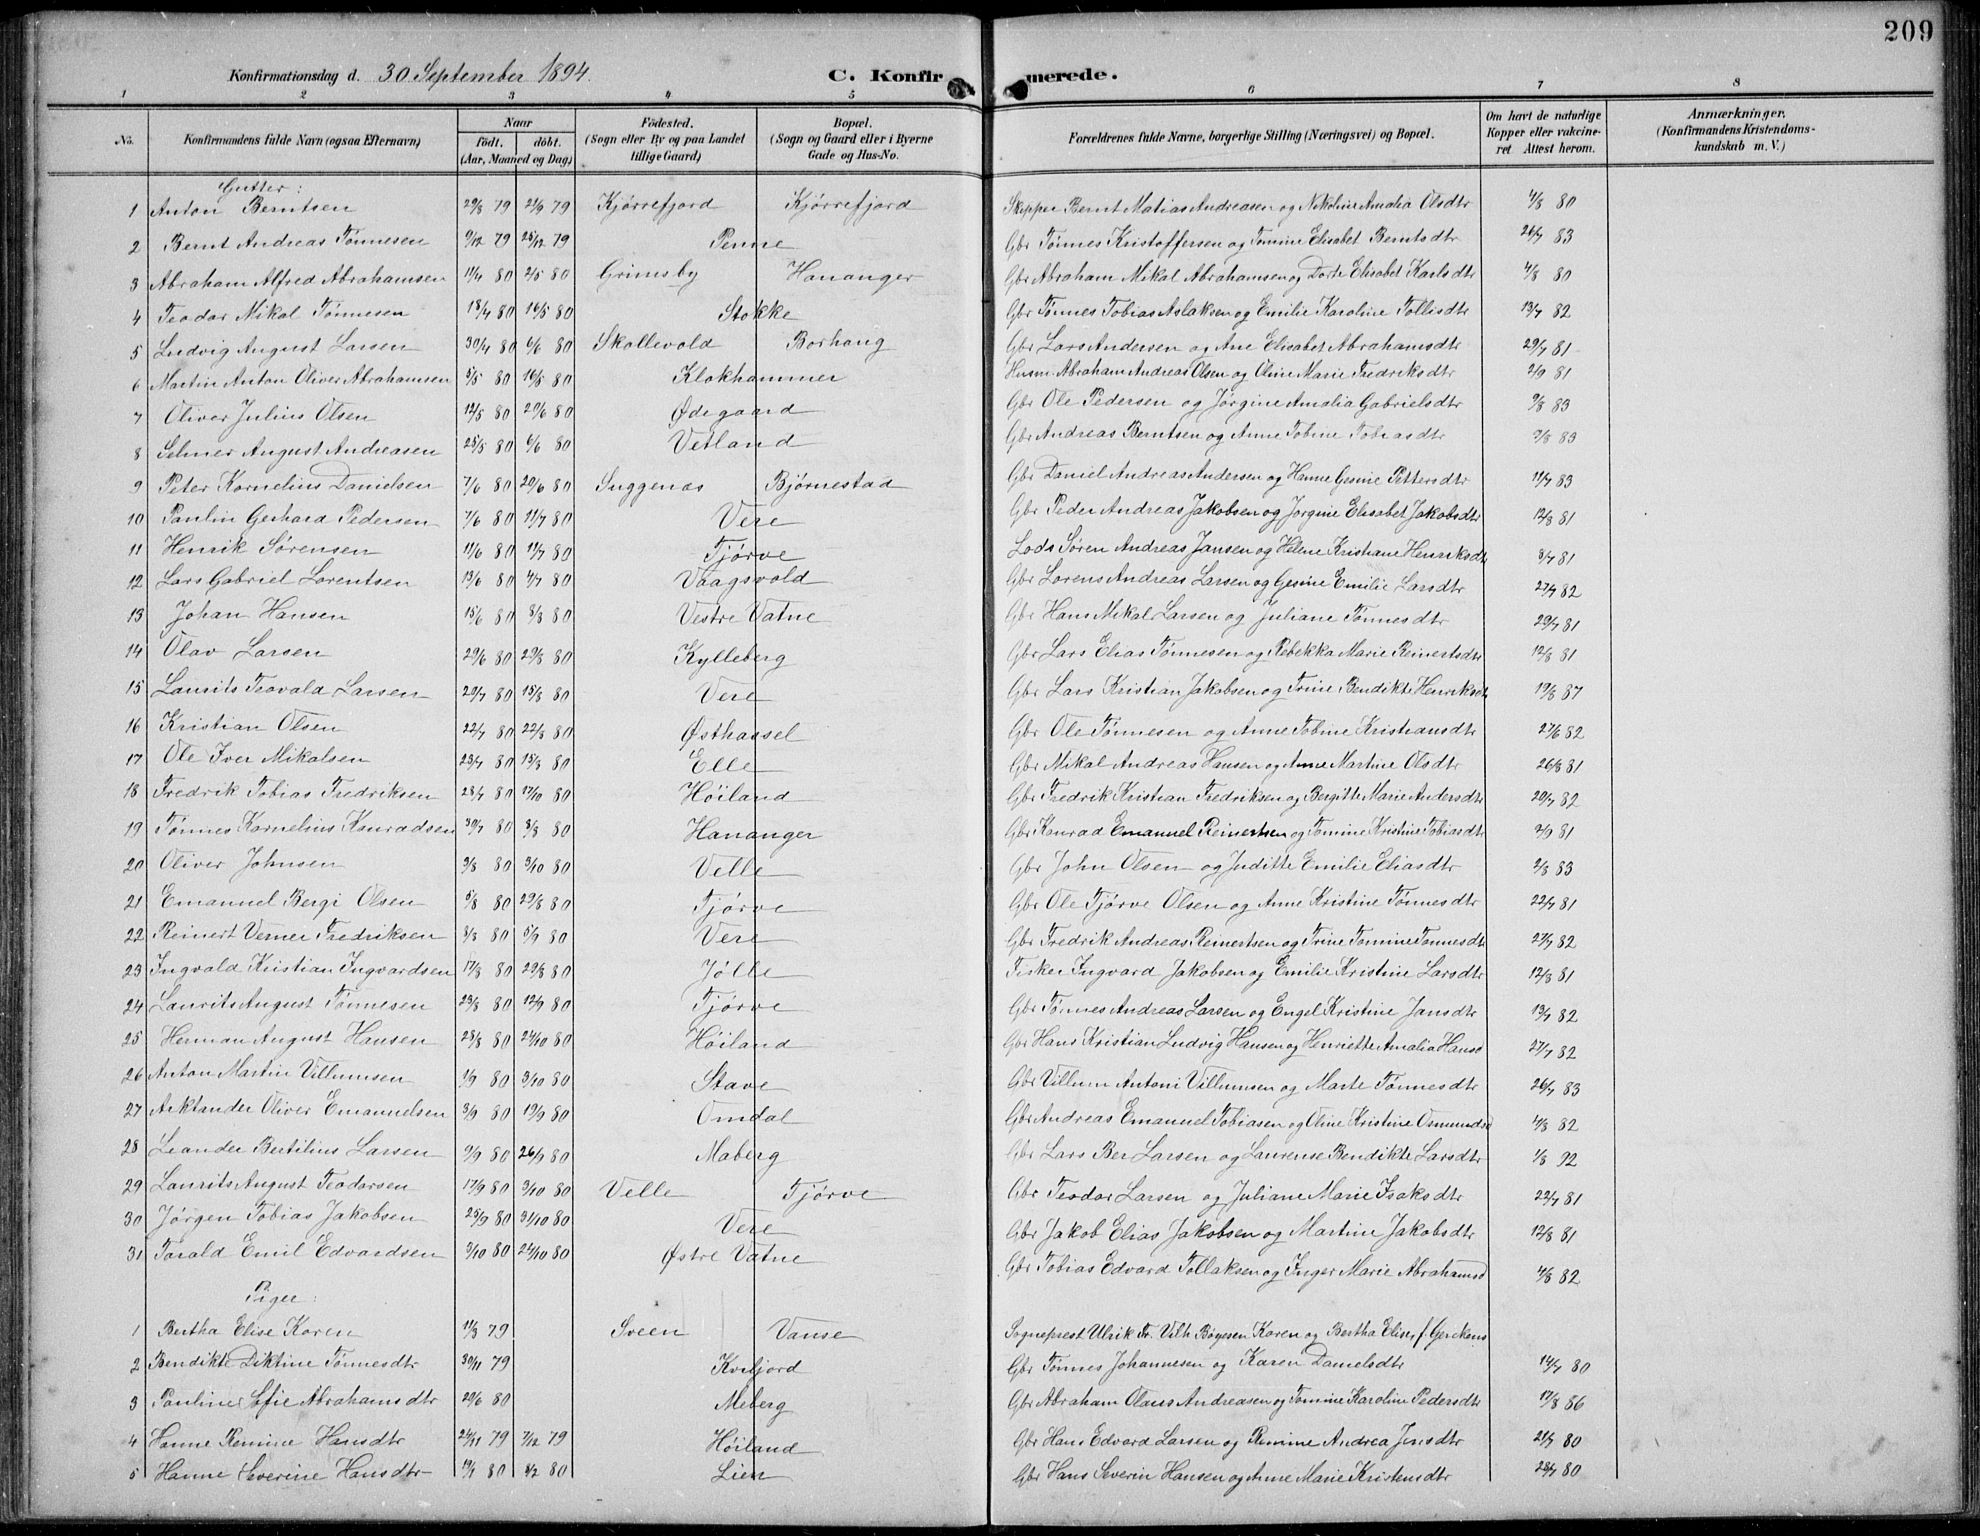 209
Konfirmationsdag d. 30 September 1894. C. Konfirmerede.
1 2 3 4 5 6 7 8
No. Konfirmandens fulde Navn (ogsaa Efternavn) Naar födt. döbt. (Aar, Maaned og Dag) Födested. (Sogn eller By og paa Landet tillige Gaard) Bopæl. (Sogn og Gaard eller i Byerne Gade og Hus-No. Forældrenes fulde Navne, borgerlige Stilling (Næringsvei) og Bopæl. Om havt de naturlige Kopper eller vakcineret Attest herom. Anmærkninger. (Konfirmandens Kristendomskundskab m. V.)
Gutter:
1 Anton Berntsen 29/8 79 21/9 79 Kjørrefjord Kjørrefjord Skipper Bernt Matias Andreasen og Nikoline Amalia Olsdtr 4/8 80
2 Bernt Andreas Tønnesen 9/12 79 25/12 79 Penne Gbr Tønnes Kristoffersen og Tomine Elisabet Berntsdtr 26/7 83
3 Abraham Alfred Abrahamsen 11/4 80 2/5 80 Grimsby Hananger Gbr Abraham Mikal Abrahamsen og Dorte Elisabet Karlsdtr 4/8 80
4 Teodor Mikal Tønnesen 18/4 80 16/5 80 Stokke Gbr Tønnes Tobias Aslaksen og Emilie Karoline Tollisdtr 13/7 82
5 Ludvig August Larsen 30/4 80 6/6 80 Skollevold Borhaug Gbr Lars Andersen og Ane Elisabet Abrahamsdtr 29/7 81
6 Martin Anton Oliver Abrahamsen 5/5 80 16/5 80 Klokhammer Husm. Abraham Andreas Olsen og Oline Marie Fredriksdtr 2/9 81
7 Oliver Julius Olsen 12/5 80 20/6 80 Ødegaard Gbr Ole Pedersen og Jørgine Amalia Gabrielsdtr 9/8 83
8 Selmer August Andreasen 25/5 80 6/6 80 Vetland Gbr Andreas Berntsen og Anne Tobine Tobiasdtr 9/8 83
9 Peter Kornelius Danielsen 7/6 80 20/6 80 Suggenas Bjørnestad Gbr Daniel Andreas Andersen og Hanne Gesine Pettersdtr 11/7 83
10 Paulin Gerhard Pedersen 7/6 80 11/7 80 Vere Gbr Peder Andreas Jakobsen og Jørgine Elisabet Jakobsdtr 12/8 81
11 Henrik Sørensen 11/6 80 11/7 80 Tjørve Lods Søren Andreas Jansen og Helene Kristiane Henriksdtr 8/7 81
12 Lars Gabriel Lorentsen 13/6 80 4/7 80 Vaagsvold Gbr Lorens Andreas Larsen og Gesine Emilie Larsdtr 27/7 82
13 Johan Hansen 15/6 80 8/8 80 Vestre Vatne Gbr Hans Mikal Larsen og Juliane Tønnesdtr 29/7 81
14 Olav Larsen 29/6 80 29/8 80 Kylleberg Gbr Lars Elias Tønnesen og Rebekka Marie Reinertsdtr 12/8 81
15 Laurits Teovald Larsen 20/7 80 15/8 80 Vere Gbr Lars Kristian Jakobsen og Trine Bendikte Henriksdtr 19/8 87
16 Kristian Olsen 22/7 80 22/8 80 Østhassel Gbr Ole Tønnesen og Anne Tobine Kristiansdtr 27/6 82
17 Ole Iver Mikalsen 23/7 80 15/8 80 Elle Gbr Mikal Andreas Hansen og Anne Martine Olsdtr 26/8 81
18 Fredrik Tobias Fredriksen 28/7 80 17/10 80 Høiland Gbr Fredrik Kristian Fredriksen og Bergitte Marie Andersdtr 20/7 82
19 Tønnes Kornelius Konradsen 30/7 80 8/8 80 Hananger Gbr Konrad Emanuel Reinertsen og Tomine Kristine Tobiasdtr 2/9 81
20 Oliver Johnsen 3/8 80 3/10 80 Velle Gbr John Olsen og Juditte Emilie Eliasdtr 2/8 83
21 Emanuel Bergi Olsen 5/8 80 29/8 80 Tjørve Gbr Ole Tjørve Olsen og Anne Kristine Tønnesdtr 22/7 81
22 Reinert Verner Fredriksen 8/8 80 5/9 80 Vere Gbr Fredrik Andreas Reinertsen og Trine Tomine Tønnesdtr 27/7 82
23 Ingvald Kristian Ingvardsen 17/8 80 29/8 80 Jølle Fisker Ingvard Jakobsen og Emilie Kristine Larsdtr 12/8 81
24 Laurits August Tønnesen 23/8 80 12/9 80 Tjørve Gbr Tønnes Andreas Larsen og Engel Kristine Jansdtr 13/7 82
25 Herman August Hansen 28/8 80 24/10 80 Høiland Gbr Hans Kristian Ludvig Hansen og Henriette Amalia Hansd 27/7 82
26 Anton Martin Villumsen 1/9 80 3/10 80 Stave Gbr Villum Antoni Villumsen og Marte Tønnesdtr 26/7 83
27 Arktander Oliver Emanuelsen 3/9 80 19/9 80 Omdal Gbr Andreas Emanuel Tobiasen og Oline Kristine Osmundsd 4/8 82
28 Leander Bertilius Larsen 9/9 80 26/9 80 Maberg Gbr Lars Ber Larsen og Laurense Bendikte Larsdtr 1/8 92
29 Laurits August Teodorsen 17/9 80 3/10 80 Velle Tjørve Gbr Teodor Larsen og Juliane Marie Isaksdtr 22/7 81
30 Jørgen Tobias Jakobsen 25/9 80 31/10 80 Vere Gbr Jakob Elias Jakobsen og Martine Jakobsdtr 12/8 81
31 Torald Emil Edvardsen 3/10 80 24/10 80 Østre Vatne Gbr Tobias Edvard Tollaksen og Inger Marie Abrahamsd 4/8 82
Piger:
1 Bertha Elise Koren 11/3 79 Sveen Vanse Sogneprest Ulrik Fr. Vilh. Bøyesen Koren og Bertha Elise f. Gerckens
2 Bendikte Diktine Tønnesdtr 30/11 79 Kviljord Gbr Tønnes Johannesen og Karen Danielsdtr 14/7 80
3 Pauline Sofie Abrahamsdtr 29/6 80 Meberg Gbr Abraham Olaus Andreasen og Tomine Karoline Pedersdtr 17/8 86
4 Hanne Remine Hansdtr 24/11 79 7/12 79 Høiland Gbr Hans Edvard Larsen og Remine Andrea Jensdtr 21/7 80
5 Hanne Severine Hansdtr 19/1 80 8/2 80 Lien Gbr Hans Severin Hansen og Anne Marie Kristensdtr 28/7 80